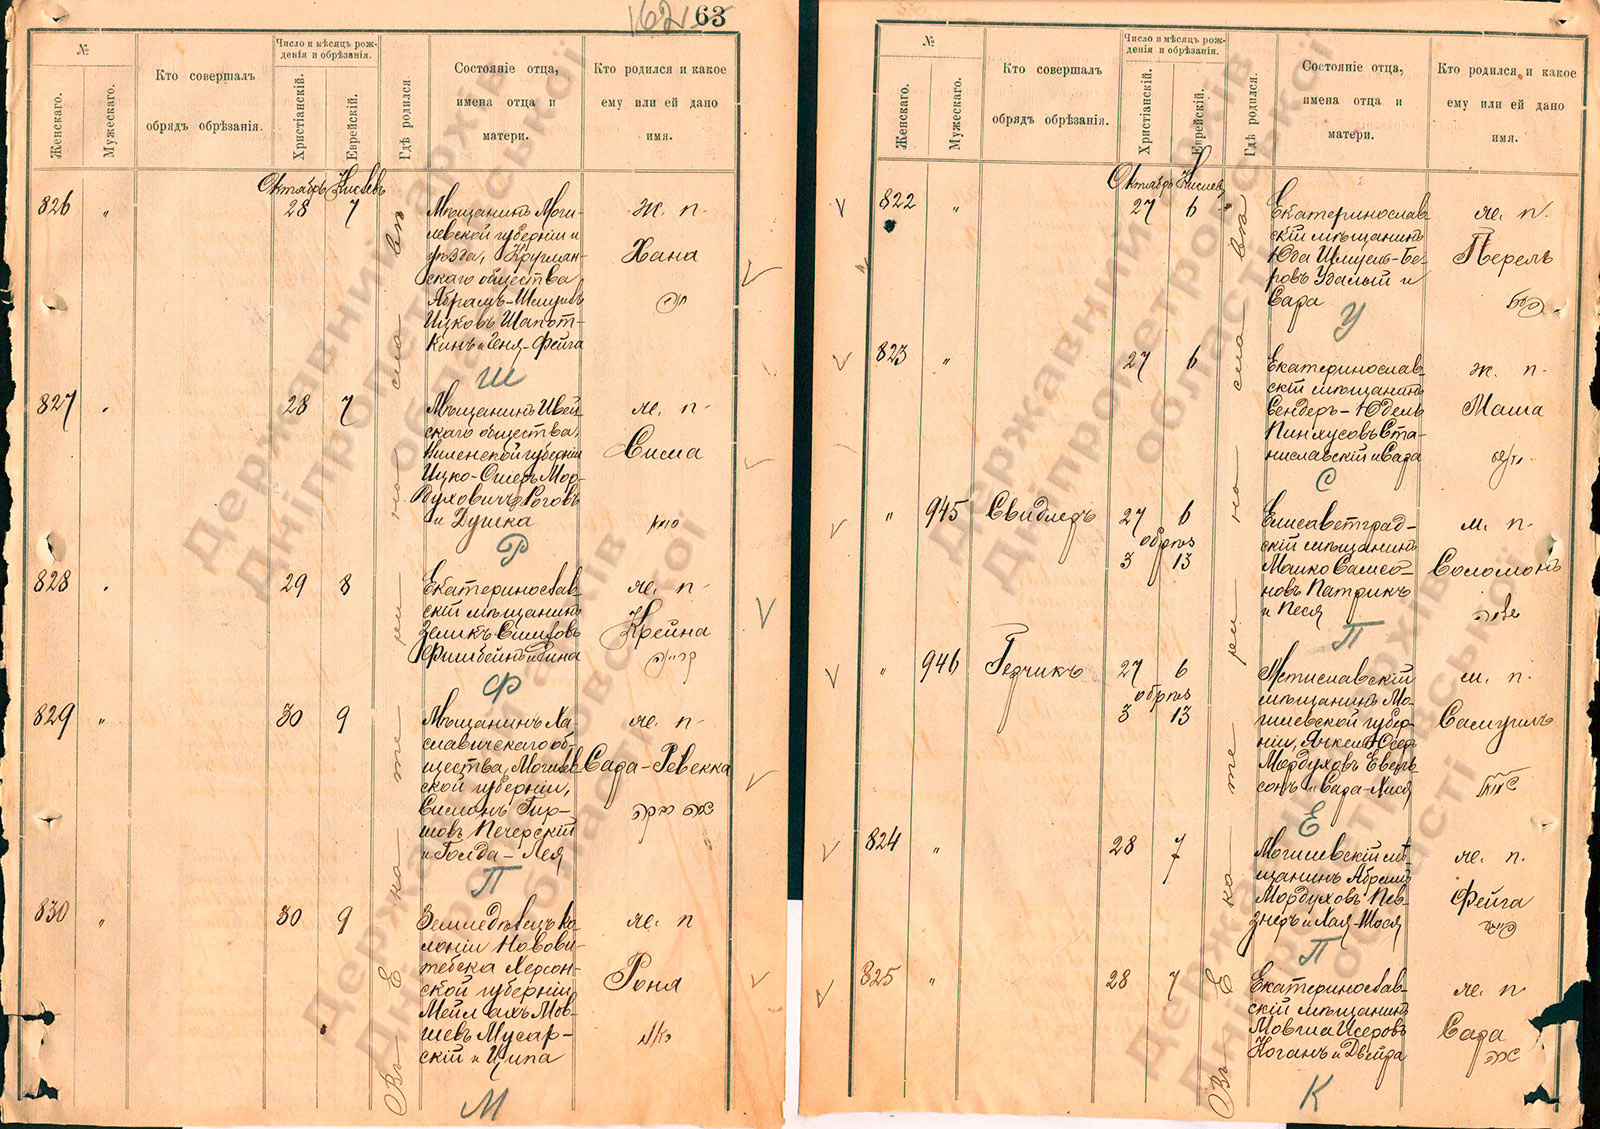 162 63
№
Женскаго.
Мужескаго.
Кто совершалъ
обрядъ обрѣзанія.
Число и мѣсяцъ рож-
денія и обрѣзанія.
Христіанскій.
Еврейскій.
Гдѣ родился.
Состояніе отца,
имена отца и
матери.
Кто родился и какое
ему или ей дано
имя.
Октябрь Кислевъ
Въ Екатеринославѣ
826 " 28 7
Мѣщанинъ Моги-
левской губерніи и
уѣзда, Круглян-
скаго общества
Абрамъ-Шмуилъ
Ицковъ Шапот-
кинъ и Геня-Фейга
ж. п.
Хана
חנה
Ш
827 " 28 7
Мѣщанинъ Ивей-
скаго общества,
Виленской губерніи
Ицко-Ошеръ Мор-
духовичъ Роговъ
и Душка
ж. п.
Сима
סימא
Р
828 " 29 8
Екатеринослав-
скій мѣщанинъ
Зеликъ
Фишбейнъ и Гина
ж. п
Крейна
קריינה
Ф
829 " 30 9
Мѣщанинъ Ха-
славичскаго об-
щества, Могилев-
ской губерніи,
Симонъ Гир-
шовъ Печерскій
и Голда-Лея
ж. п
Сара-Ревекка
שרה רבקה
П
830 " 30 9
Земледѣлецъ ко-
лоніи Новови-
тебска Херсон-
ской губерніи
Мейлахъ Мов-
шевъ Мусар-
скій и Ципа
ж. п
Роня
М
№
Женскаго.
Мужескаго.
Кто совершалъ
обрядъ обрѣзанія.
Число и мѣсяцъ рож-
денія и обрѣзанія.
Христіанскій.
Еврейскій.
Гдѣ родился.
Состояніе отца,
имена отца и
матери.
Кто родился и какое
ему или ей дано
имя.
Октябрь Кислевъ
Въ Екатеринославѣ
822 " 27 6
Екатеринослав-
скій мѣщанинъ
Юда Шмуель-Бе-
ровъ Удалый и
Сара
ж. п.
Перель
פערל
У
823 " 27 6
Екатеринослав-
скій мѣщанинъ
Сендеръ-Юдель
Пинхусовъ Ста-
ниславскій и Сара
ж. п.
Маша
С
" 945 Свидлеръ 27 6
обрѣз
3 13
Елисаветград-
скій мѣщанинъ
Манко Самсо-
новъ Патрикъ
и Песя
м. п.
Соломонъ
שלמה
П
" 946 Герчикъ 27 6
обрѣз
3 13
Мстиславскій
мѣщанинъ Мо-
гилевской губер-
ніи, Янкель Юсер
Мордуховъ Евель-
сонъ и Сара-Лися
м. п.
Самуилъ
שמואל
Е
824 " 28 7
Могилевскій мѣ-
щанинъ Абрамъ
Мордуховъ Пев-
знеръ и Хая-Тося
ж. п.
Фейга
פייגה
П
825 " 28 7
Екатеринослав-
скій мѣщанинъ
Мовша Исеровъ
Коганъ и Двейра
ж. п
Сара
שרה
К
Державний архів
Дніпропетровської
області